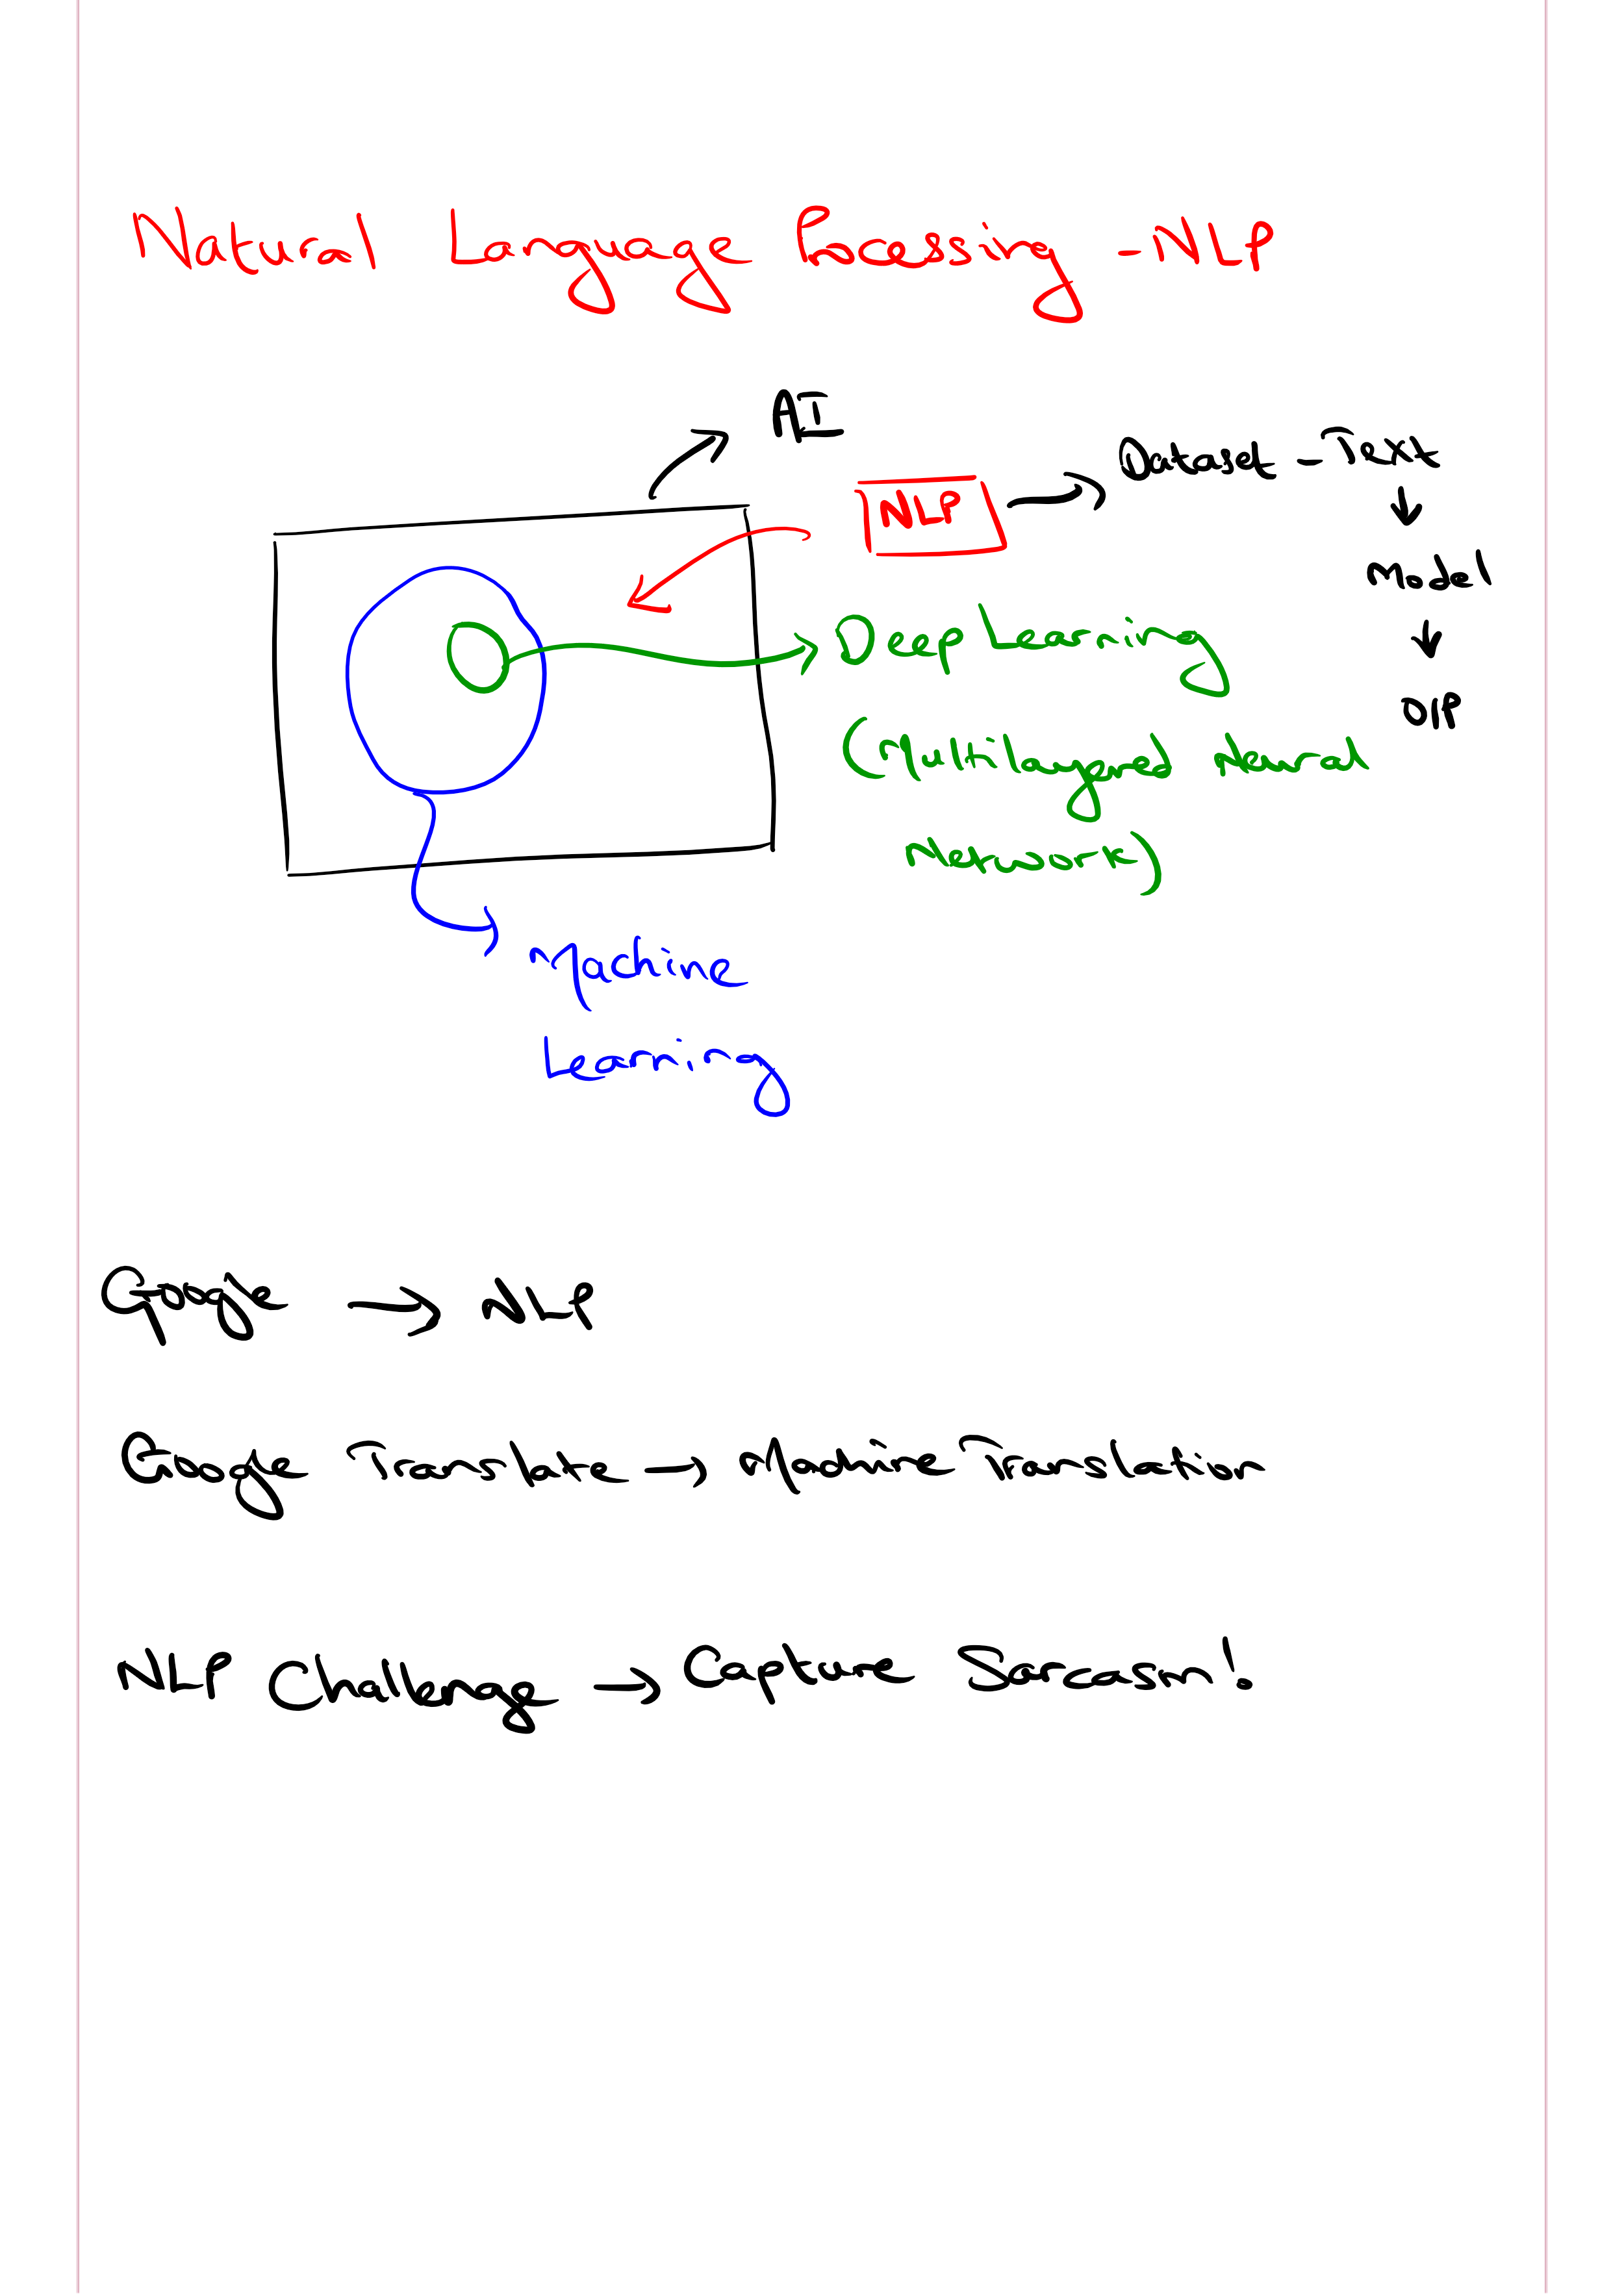 Natural Language Processing - NLP
AI
NLP → Dataset - Text
↓
Model
↓
O/P
Deep Learning
(Multilayered Neural
Network)
Machine
Learning
Google → NLP
Google Translate → Machine Translation
NLP Challenge → Capture Sarcasm!